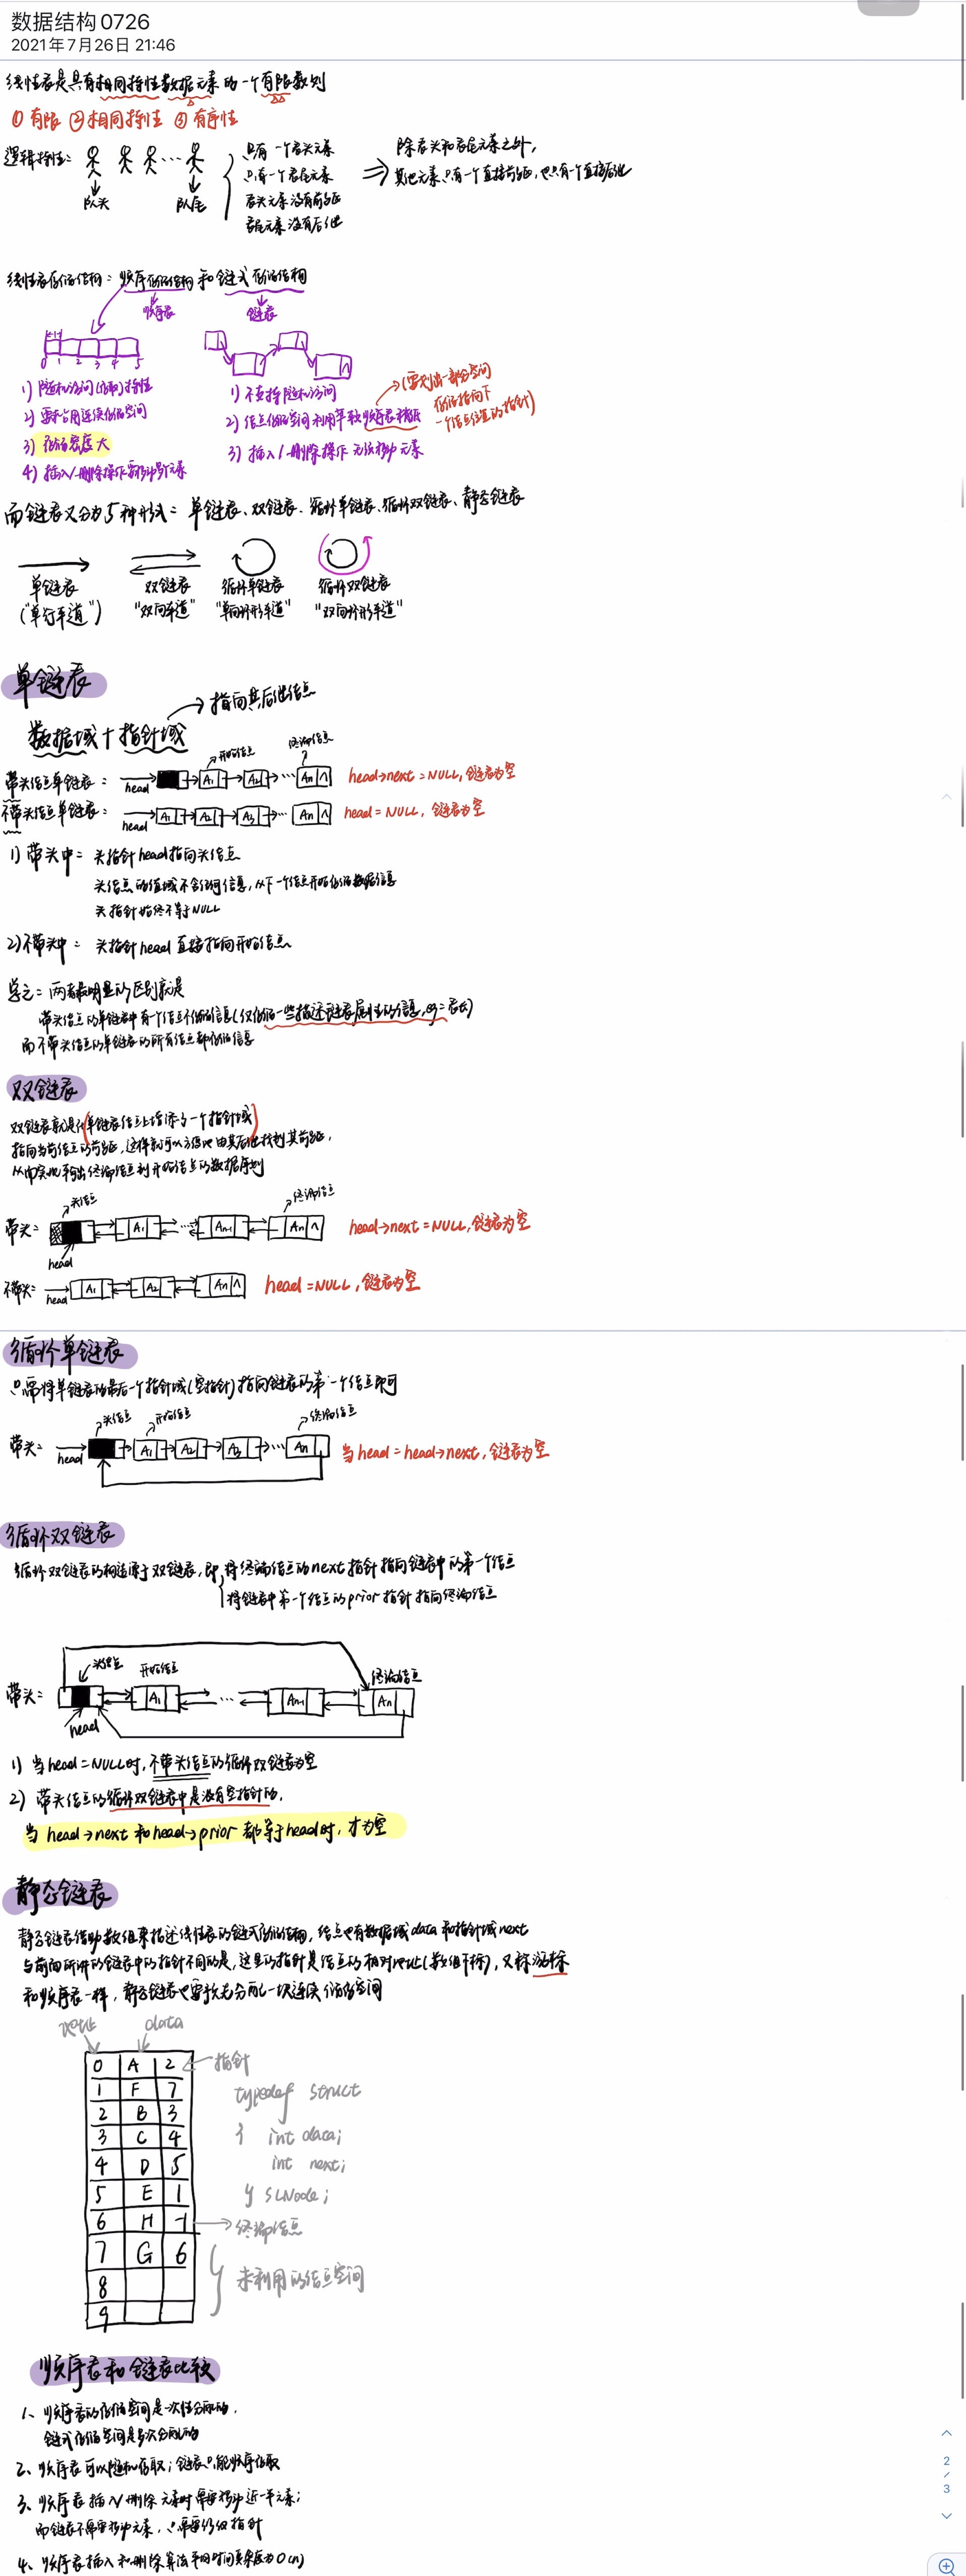 数据结构0726
2021年7月26日 21:46
线性表是具有相同特性数据元素的一个有限数列
① 有限 ② 相同特性 ③ 有序性
逻辑特性：
队头
队尾
只有一个表头元素
只有一个表尾元素
表头元素没有前驱
表尾元素没有后继
除表头和表尾元素之外，
其它元素只有一个直接前驱，也只有一个直接后继
线性表存储结构：顺序存储结构和链式存储结构
顺序表
链表
0 1 2 3 4 5
1) 随机访问(存取)特性
2) 要占用连续存储空间
3) 存储密度大
4) 插入/删除操作需移动多个元素
1) 不支持随机访问
2) 结点存储空间利用率较顺序表稍低
3) 插入/删除操作无须移动元素
(需划出一部分空间
存储指向下
一个结点位置的指针)
而链表又分为5种形式：单链表、双链表、循环单链表、循环双链表、静态链表
单链表
("单行车道")
双链表
"双向车道"
循环单链表
"单向环形车道"
循环双链表
"双向环形车道"
单链表
数据域+指针域
指向其后继结点
开始结点
终端结点
带头结点单链表：
head
A1 A2 … An ∧
head→next=NULL, 链表为空
不带头结点单链表：
head
A1 A2 A3 … An ∧
head=NULL，链表为空
1) 带头中： 头指针head指向头结点
头结点的值域不含任何信息，从下一个结点开始存储数据信息
头指针始终不等于NULL
2) 不带头中： 头指针head直接指向开始结点
总之：两者最明显的区别就是
带头结点的单链表中有一个结点不存储信息(仅存储一些描述链表属性的信息，eg：表长)
而不带头结点的单链表的所有结点都存储信息
双链表
双链表就是在(单链表结点上增添了一个指针域)
指向当前结点的前驱，这样就可以方便地由其后继找到其前驱，
从而实现输出终端结点到开始结点的数据序列
头结点
终端结点
带头：
head
A1 … An-1 An ∧
head→next=NULL, 链表为空
不带头：
head
A1 A2 An ∧
head=NULL, 链表为空
循环单链表
只需将单链表的最后一个指针域(空指针)指向链表的第一个结点即可
头结点
开始结点
终端结点
带头：
head
A1 A2 A3 … An
当head=head→next, 链表为空
循环双链表
循环双链表的构造源于双链表，即 将终端结点的next指针指向链表中的第一个结点
将链表中第一个结点的prior指针指向终端结点
头结点
开始结点
终端结点
带头：
A1 … An-1 An
head
1) 当head=NULL时，不带头结点的循环双链表为空
2) 带头结点的循环双链表中是没有空指针的，
当head→next和head→prior都等于head时，才为空
静态链表
静态链表借助数组来描述线性表的链式存储结构，结点也有数据域data和指针域next
与前面所讲的链表中的指针不同的是，这里的指针是结点的相对地址(数组下标)，又称游标
和顺序表一样，静态链表也要预先分配一块连续存储空间
地址
data
指针
0 A 2
1 F 7
2 B 3
3 C 4
4 D 5
5 E 1
6 H -1
7 G 6
8
9
typedef struct
{ int data;
int next;
} SLNode;
终端结点
未利用的结点空间
顺序表和链表比较
1、顺序表的存储空间是一次性分配的，
链式存储空间是多次分配的
2、顺序表可以随机存取；链表只能顺序存取
3、顺序表插入/删除元素时需要移动近一半元素；
而链表不需要移动元素，只需要修改指针
4、顺序表插入和删除算法平均时间复杂度为O(n)
2
/
3